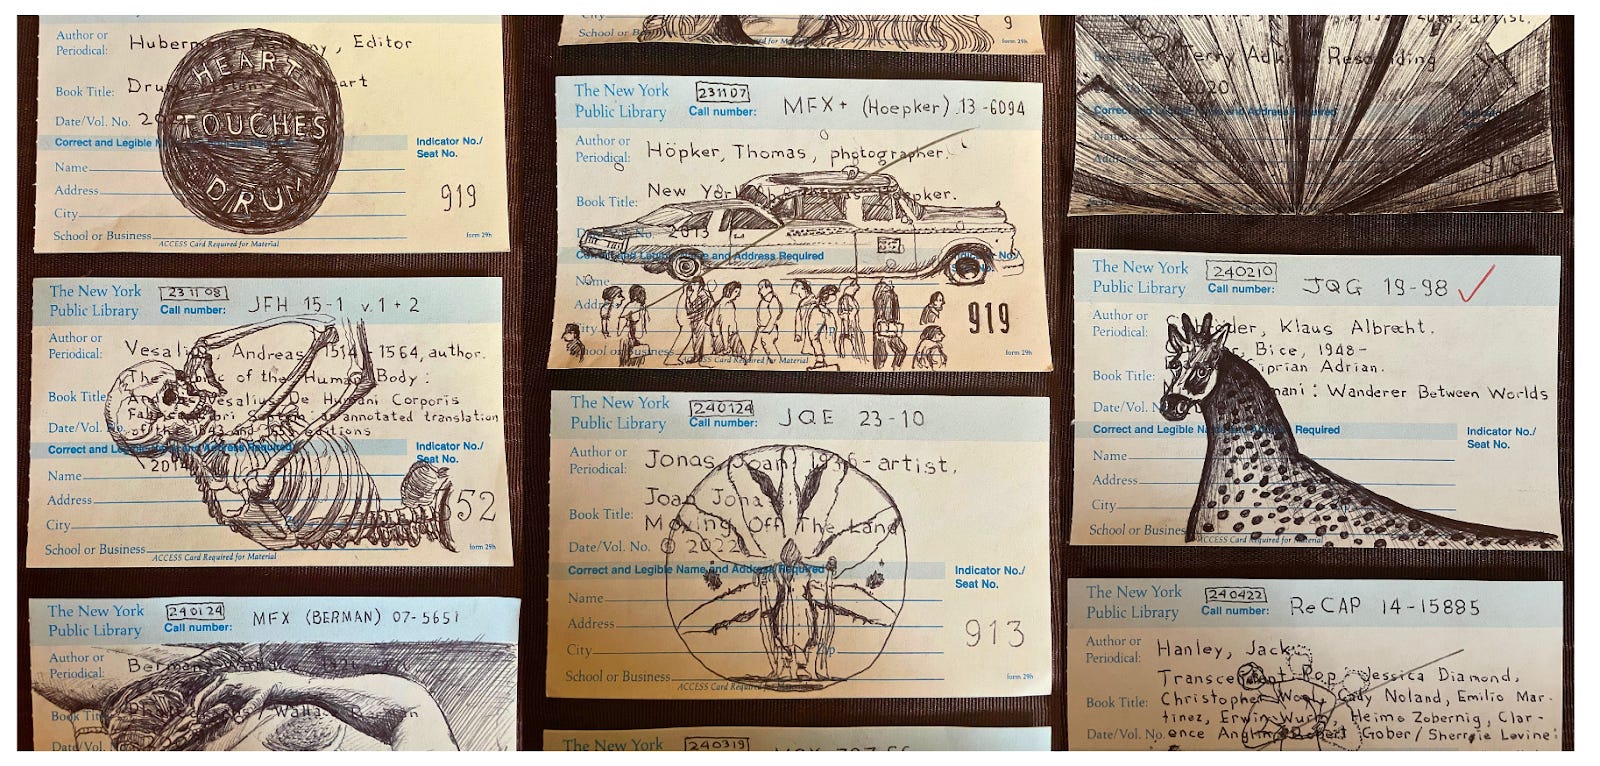 Author or
Periodical:
Huber , Editor
HEART
Book Title:
art
Date/Vol. No.
TOUCHES
Correct and Legible
Indicator No./
Seat No.
DRUM
Name
Address
919
City
School or Business
ACCESS Card Required for Material
form 29h
The New York
Public Library
231108
Call number:
JFH 15-1 v. 1 + 2
Author or
Periodical:
Vesalius, Andreas, 1514-1564, author.
Book Title:
The of the Human Body:
Andreas Vesalius De Humani Corporis
Fabrica Libri Septem: an annotated translation
Date/Vol. No.
of the 1543 and editions
Correct and Legible Name and Address Required
Indicator No./
Seat No.
Name
Address
52
City
School or Business
ACCESS Card Required for Material
form 29h
The New York
Public Library
240124
Call number:
MFX (BERMAN) 07-5651
Author or
Periodical:
Berman, Wallace
Book Title:
/ Wallace Berman
Date/Vol. No.
City
9
School or
form 29h
The New York
Public Library
231107
Call number:
MFX+ (Hoepker) 13-6094
Author or
Periodical:
Höpker, Thomas, photographer.
Book Title:
New York pker.
2013
Correct and Legible Name and Address Required
No./
No.
Name
Address
City
Zip
919
School or Business
ACCESS Card Required for Material
form 29h
The New York
Public Library
240124
Call number:
JQE 23-10
Author or
Periodical:
Jonas, Joan, 1936- artist.
Joan Jonas
Book Title:
Moving Off The Land
Date/Vol. No.
© 2022
Correct and Legible Name and Address Required
Indicator No./
Seat No.
Name
Address
City
Zip
913
School or Business
ACCESS Card Required for Material
form 29h
The New York
240319
artist.
Terry Adkins Resounding
2020
Correct and Legible Name and Address Required
Name
Address
919
The New York
Public Library
240210
Call number:
JQG 19-98
Author or
Periodical:
Klaus Albrecht.
, Bice, 1948-
Book Title:
iprian Adrian.
mani: Wanderer Between Worlds
Date/Vol. No.
Correct and Legible Name and Address Required
Indicator No./
Seat No.
Name
Address
City
School or Business
ACCESS Card Required for Material
The New York
Public Library
240422
Call number:
ReCAP 14-15885
Author or
Periodical:
Hanley, Jack
Transcendent Pop: Jessica Diamond,
Book Title:
Christopher Wool, Cady Noland, Emilio Mar-
tinez, Erwin Wurm, Heimo Zobernig, Clar-
Date/Vol. No.
ence Anglin, Robert Gober/Sherrie Levine: